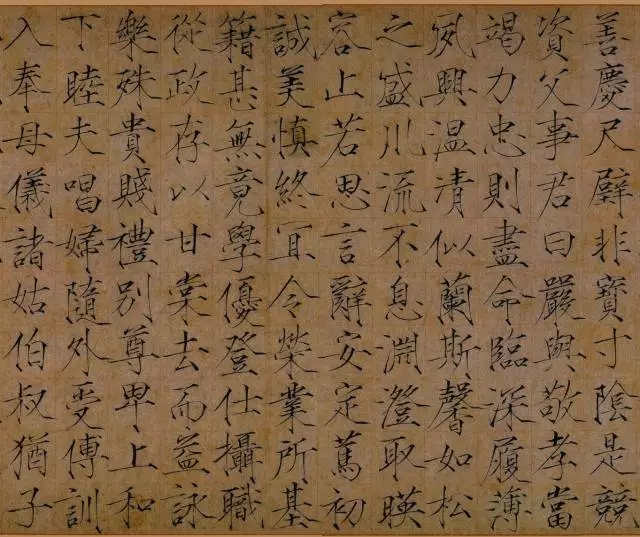 善慶尺璧非寶寸陰是競
資父事君曰嚴與敬孝當
竭力忠則盡命臨深履薄
夙興温清似蘭斯馨如松
之盛川流不息淵澄取暎
容止若思言辭安定篤初
誠美慎終冝令榮業所基
籍甚無竟學優登仕攝職
從政存以甘棠去而益詠
樂殊貴賤禮別尊卑上和
下睦夫唱婦隨外受傅訓
入奉母儀諸姑伯叔猶子